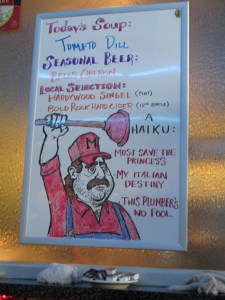 Today's Soup:
Tomato Dill
Seasonal Beer:
Local Selection:
Hardywood Singel (Pint)
Bold Rock Hard Cider
A
Haiku:
Must save the
Princess
My Italian
Destiny
This plumber's
no fool
M